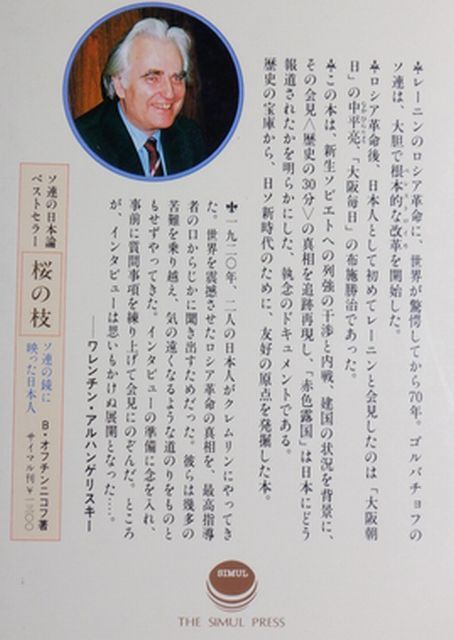 ♣レーニンのロシア革命に、世界が驚愕してから70年。ゴルバチョフの
ソ連は、大胆で根本的な改革を開始した。
♣ロシア革命後、日本人として初めてレーニンと会見したのは「大阪朝
日」の中平亮、「大阪毎日」の布施勝治であった。
♣この本は、新生ソビエトへの列強の干渉と内戦、建国の状況を背景に、
その会見〈歴史の30分〉の真相を追跡再現し、「赤色露国」は日本にどう
報道されたかを明らかにした、執念のドキュメントである。
歴史の宝庫から、日ソ新時代のために、友好の原点を発掘した本。
♣一九二〇年、二人の日本人がクレムリンにやってき
た。世界を震撼させたロシア革命の真相を、最高指導
者の口からじかに聞き出すためだった。彼らは幾多の
苦難を乗り越え、気の遠くなるような道のりをものと
もせずやってきた。インタビューの準備に念を入れ、
事前に質問事項を練り上げて会見にのぞんだ。ところ
が、インタビューは思いもかけぬ展開となった……。
――ワレンチン・アルハンゲリスキー
ソ連の日本論
ベストセラー
桜の枝
ソ連の鏡に
映った日本人
B・オフチンニコフ著
サイマル刊 ¥一三〇〇
SIMUL
THE SIMUL PRESS